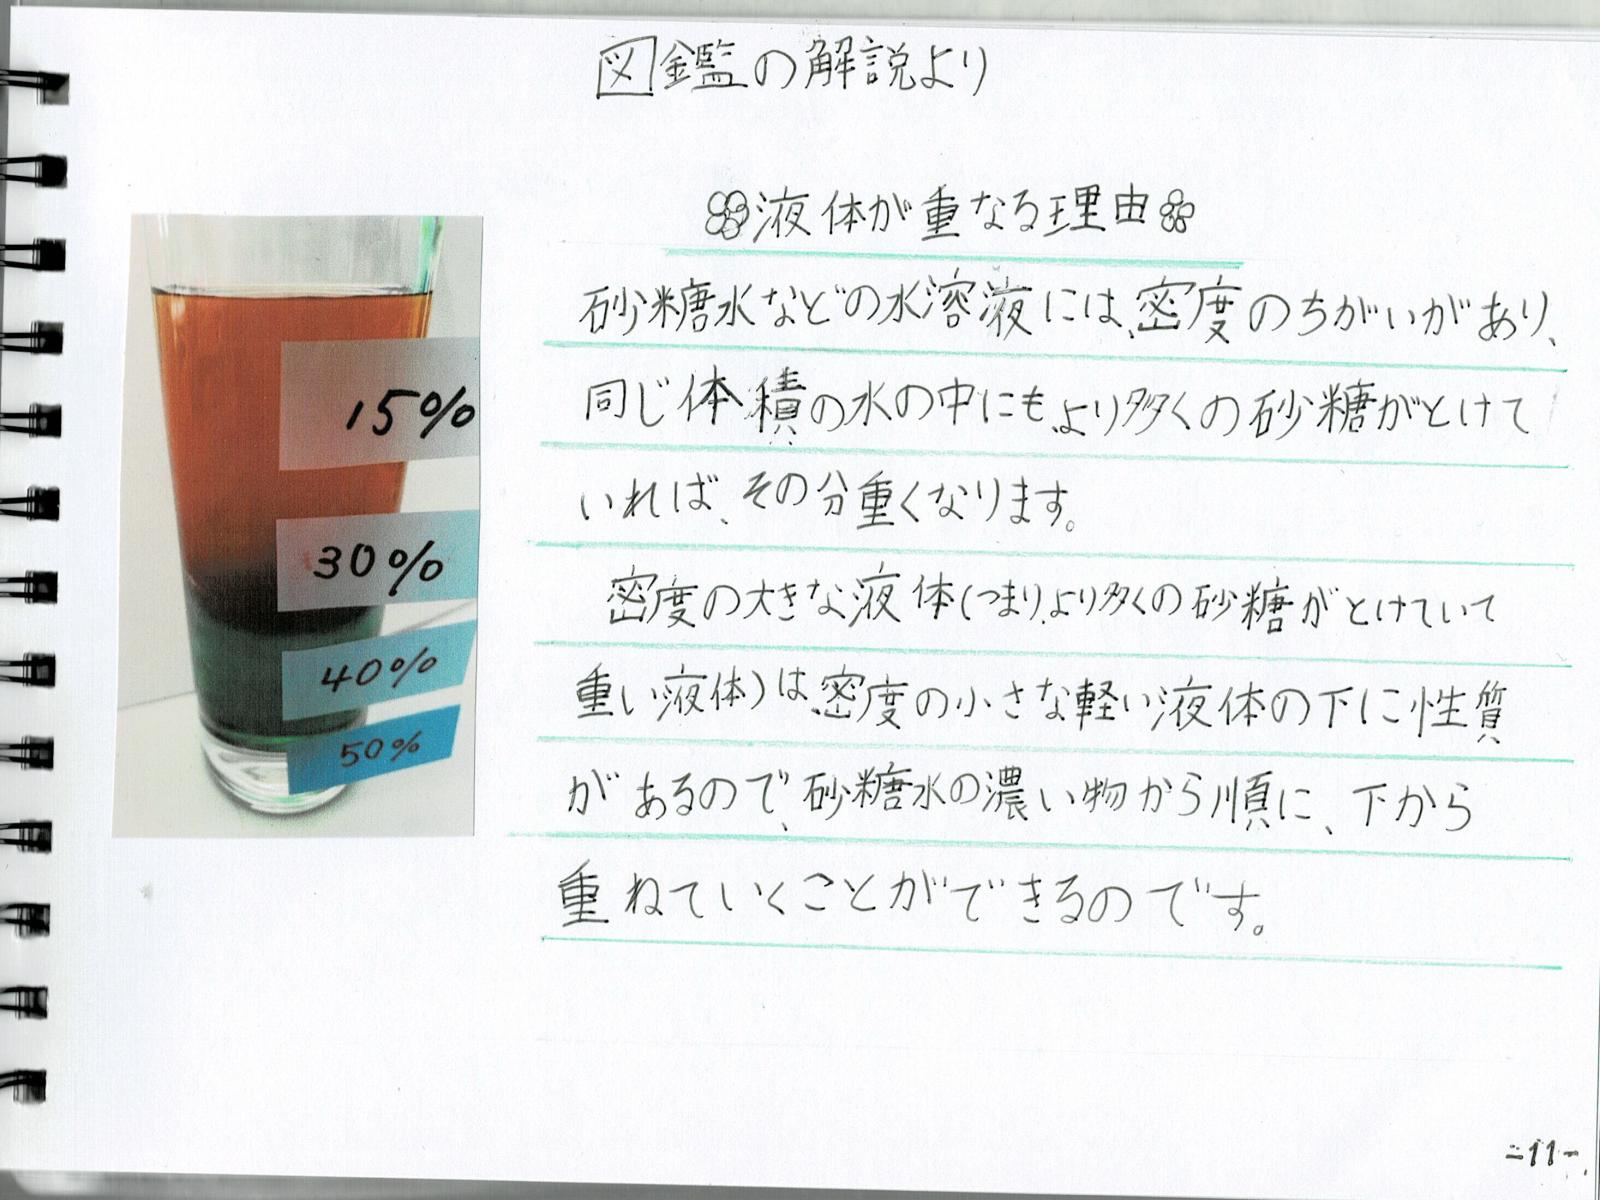 図鑑の解説より
液体が重なる理由
砂糖水などの水溶液には、密度のちがいがあり、
同じ体積の水の中にも、より多くの砂糖がとけて
いれば、その分重くなります。
密度の大きな液体(つまり、より多くの砂糖がとけていて
重い液体)は、密度の小さな軽い液体の下に性質
があるので、砂糖水の濃い物から順に、下から
重ねていくことができるのです。
15%
30%
40%
50%
-11-